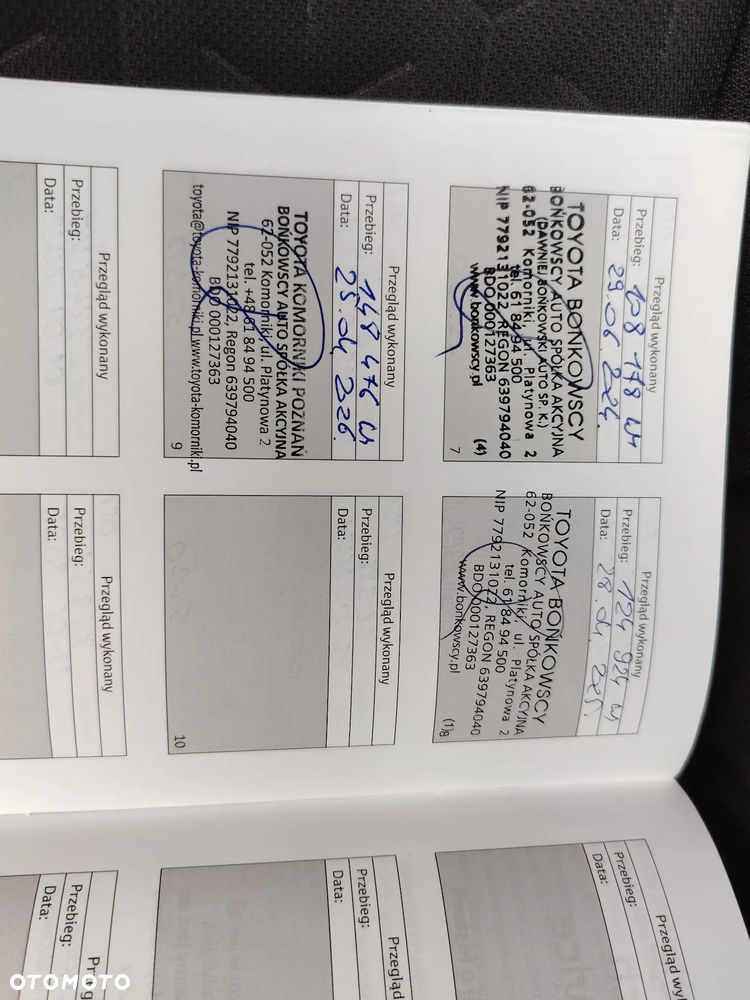 Przegląd wykonany
Przebieg: 108 178 km
Data: 29.06 2024.
TOYOTA BOŃKOWSCY
BOŃKOWSCY AUTO SPÓŁKA AKCYJNA
(DAWNIEJ BOŃKOWSKI AUTO SP. K.)
62-052 Komorniki, ul. Platynowa 2
tel. 61 84 94 500
NIP 7792131022, REGON 639794040
BDO 000127363
www.bonkowscy.pl
(4)
7
Przegląd wykonany
Przebieg: 124 924 km
Data: 28.04 2025
TOYOTA BOŃKOWSCY
BOŃKOWSCY AUTO SPÓŁKA AKCYJNA
62-052 Komorniki, ul. Platynowa 2
tel. 61 84 94 500
NIP 7792131022, REGON 639794040
BDO 000127363
www.bonkowscy.pl
(1)
8
Przegląd wykonany
Przebieg: 148 476 km
Data: 25.04 2026.
TOYOTA KOMORNIKI POZNAŃ
BOŃKOWSCY AUTO SPÓŁKA AKCYJNA
62-052 Komorniki, ul. Platynowa 2
tel. +48 61 84 94 500
NIP 7792131022, Regon 639794040
BDO 000127363
toyota@toyota-komorniki.pl www.toyota-komorniki.pl
9
Przegląd wykonany
Przebieg:
Data:
10
Przegląd wykonany
Przebieg:
Data:
Przegląd wykonany
Przebieg:
Data:
Przegląd wy
Przebieg:
Data:
Przegląd wy
Przebieg:
Data:
Przeg
Przebieg:
Data:
OTOMOTO